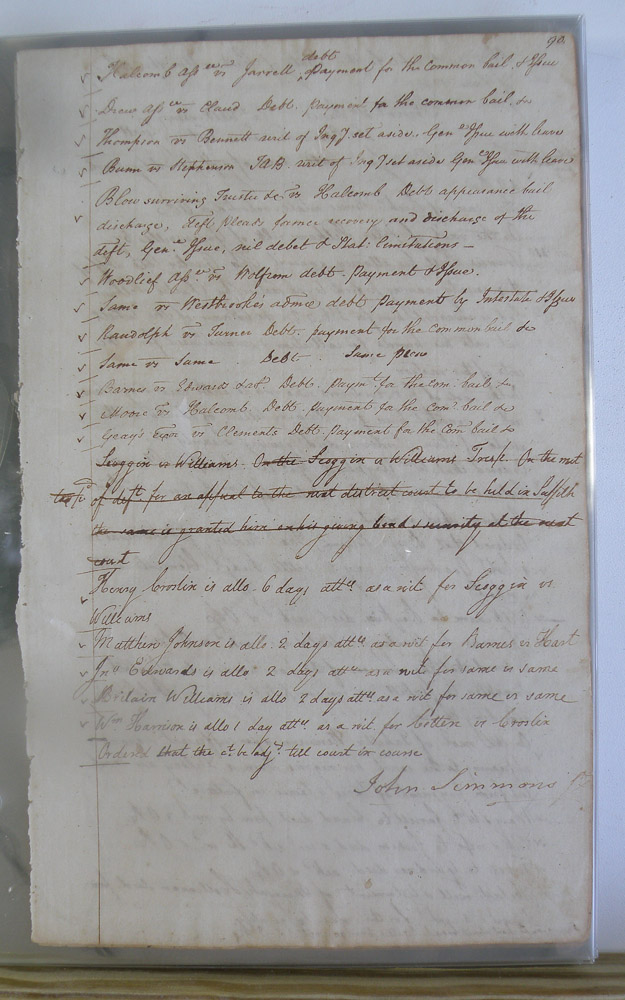 90
debt
Halcomb Assee vs Jarrell payment for the common bail & Issue
Drew Assee vs Claud Debt. payment for the common bail &c
Thompson vs Bennett writ of Inqy set aside. Genl Issue with leave
Bunn vs Stephenson TAB. writ of Inqy set aside Genl Issue with leave
Blow surviving Trustee &c vs Halcomb Debt appearance bail
discharge, deft pleads former recovery and discharge of the
deft, Genl Issue, nil debet & Stat: limitations –
Woodlief Assee vs Wolfrum debt. payment & Issue.
Same vs Westbrooke's admor debt payment by Intestate & Issue
Randolph vs Turner Debt. payment for the common bail &c
Same vs Same. Debt. Same
Barnes vs Edwards &aor Debt. paymt for the com. bail &c
Moore vs Halcomb. Debt. payment for the Com. bail &c
Gray's Exor vs Clements Debt. payment for the Com bail &c
Scoggin vs Williams. On the Scoggin a Williams Tresp. On the mot
of deft for an appeal to the next district court to be held in Suffolk
the same is granted him on his giving bond & security at the next
court
Henry Croslin is allo. 6 days atte as a wit for Scoggin vs
Williams
Matthew Johnson is allo. 2 days atte as a wit for Barnes vs Hart
Jno Edwards is allo 2 days atte as a wit for same vs same
Britain Williams is allo 2 days atte as a wit for same vs same
Wm Harrison is allo 1 day atte as a wit. for Cotten vs Croslin
Ordered that the ct be adjd till court in course
John Simmons